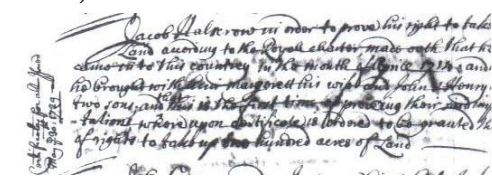 Jacob Halscrow in order to prove his right to take
Land according to the Royal charter made oath that he
came in to this country in the month of 1724 and
he brought with him Margarett his wife and John & Henry
two sons and this is the first time of proveing their
whereupon certificate is ordered to be granted th
of rights to take up one hundred acres of Land
Certificate for all Issued
May ye 30 1729